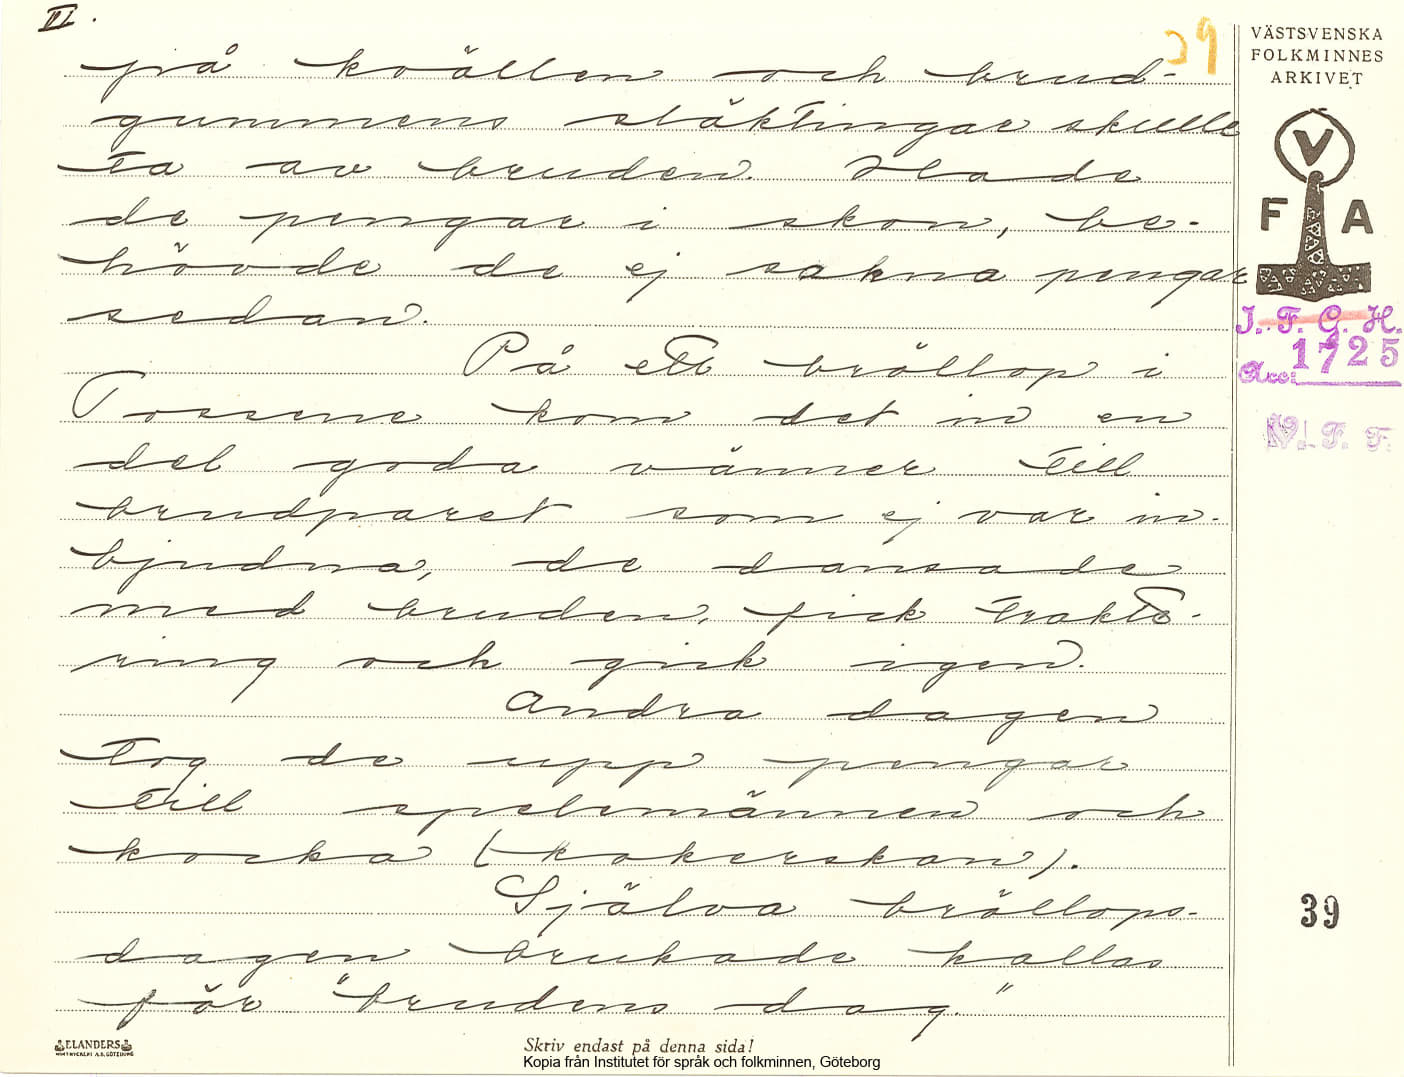 II.
29
på kvällen och brud-
gummens släktingar skulle
ta av bruden. Hade
de pengar i skon, be-
hövde de ej sakna pengar
sedan.
På ett bröllop i
Tossene kom det in en
del goda vänner till
brudparet som ej var in-
bjudna, de dansade
med bruden, fick trakte-
ring och gick igen.
Andra dagen
tog de upp pengar
till spelmännen och
kocka (kokerskan).
Själva bröllops-
dagen brukade kallas
för "brudens dag."
VÄSTSVENSKA
FOLKMINNES
ARKIVET
V
F A
I. F. G. H.
Acc: 1725
V. F. F.
39
ELANDERS
Skriv endast på denna sida!
Kopia från Institutet för språk och folkminnen, Göteborg